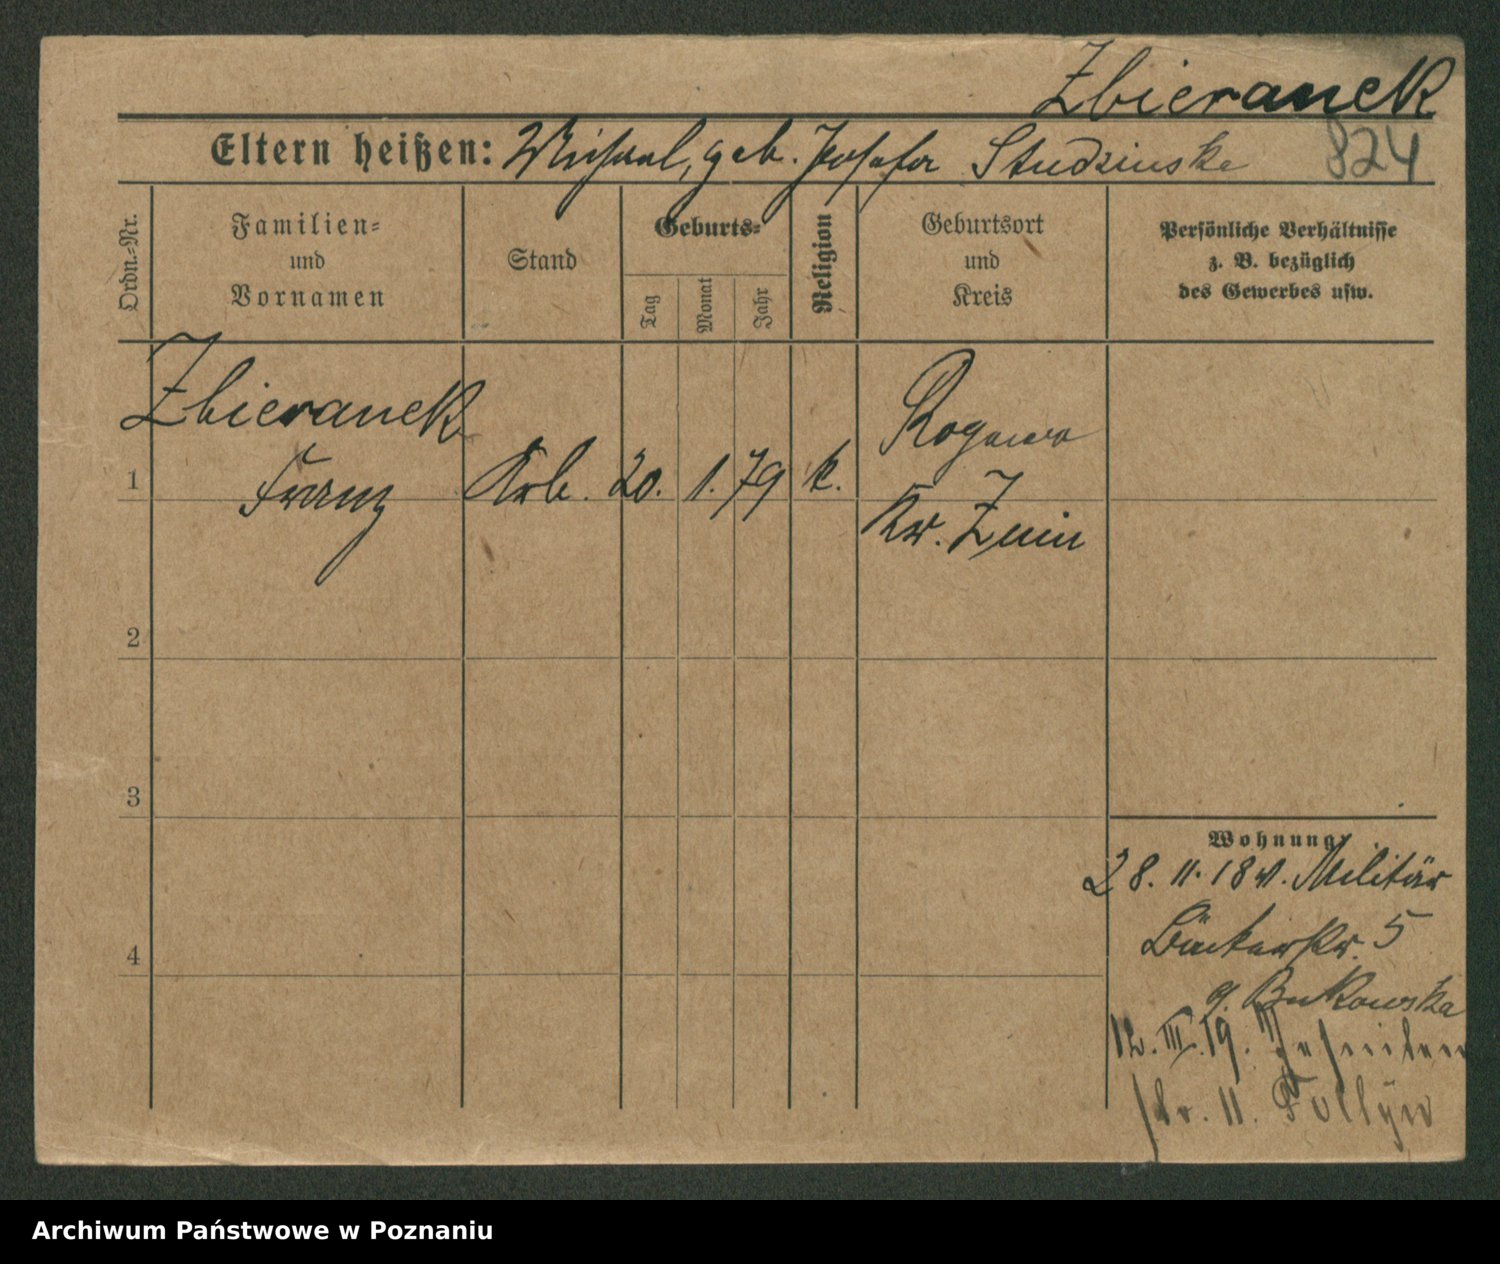 Zbieranek
824
Eltern heißen: Michael, geb. Josefa Studzinska
Ordn.-Nr.
Familien-
und
Vornamen
Stand
Geburts-
Tag
Monat
Jahr
Religion
Geburtsort
und
Kreis
Persönliche Verhältnisse
z. B. bezüglich
des Gewerbes usw.
Zbieranek
1 Franz Arb. 20. 1. 79 k. Rogowo
Kr. Znin
2
3
4
Wohnung
28. 11. 18 v. Militär
Bäckerstr. 5
b. Bukowska
12. III. 19. Jesuiten
str. 11.
Archiwum Państwowe w Poznaniu